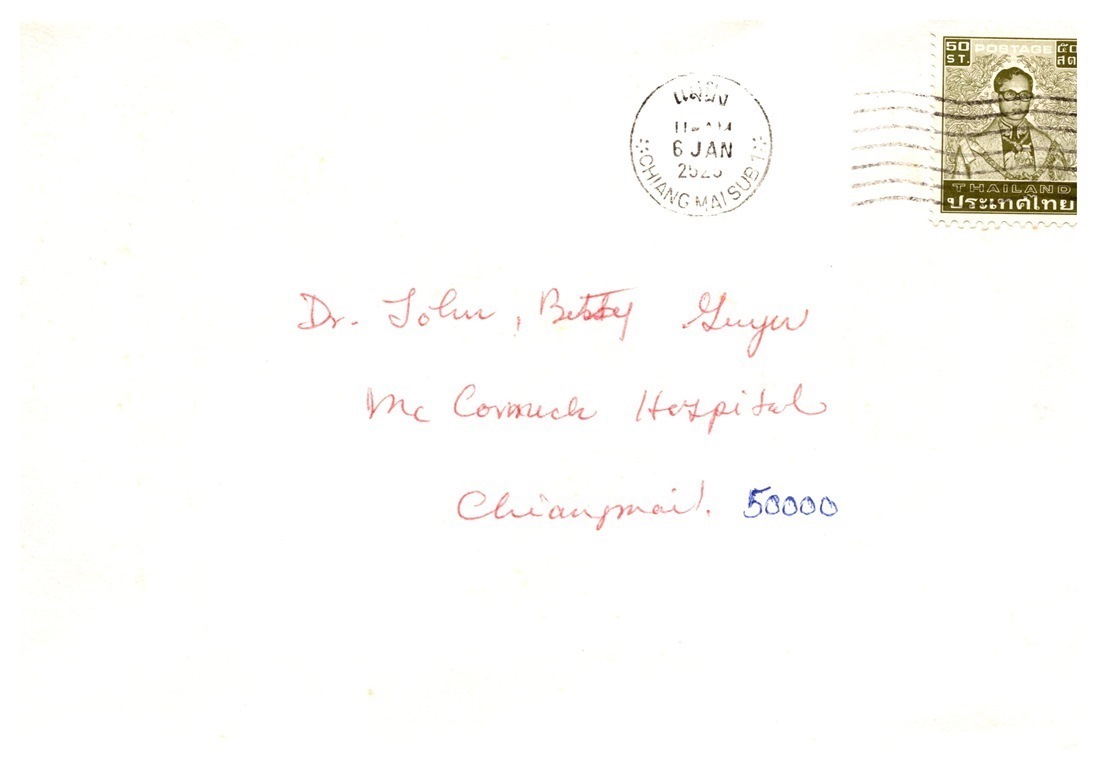 50 ST. POSTAGE ๕๐ สต
THAILAND
ประเทศไทย
แม่ปิง
6 JAN
CHIANG MAI SUB 1
Dr. John, Betty Guyer
Mc Cormick Hospital
Chiangmai. 50000